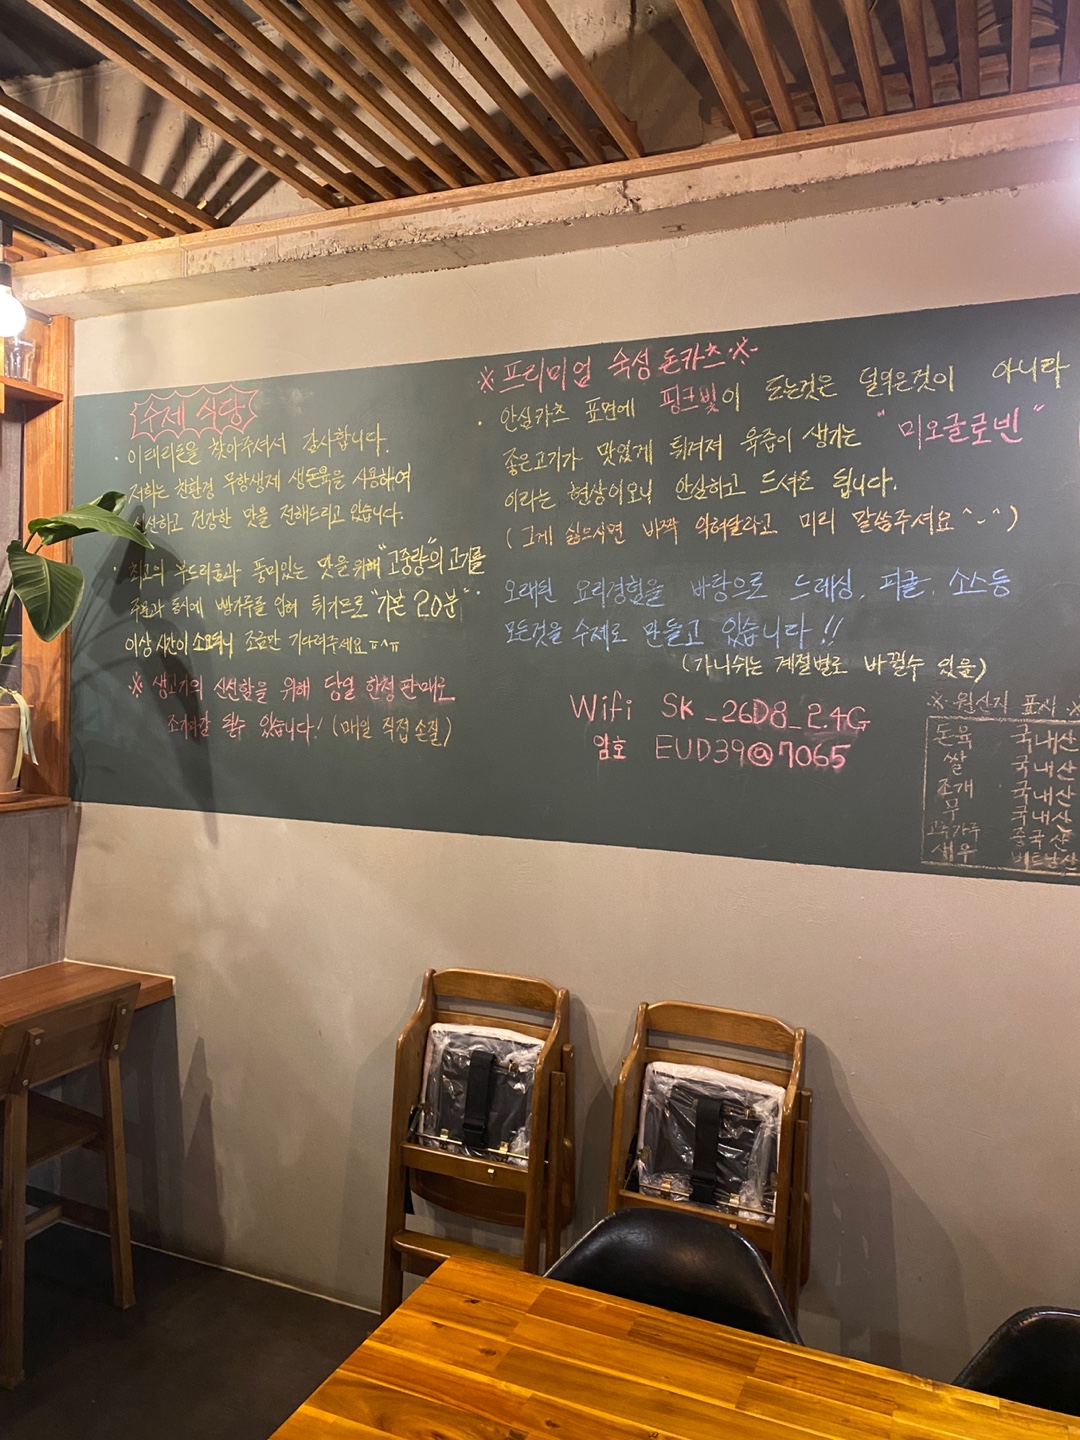 수제 식당
· 이태리순을 찾아주셔서 감사합니다.
저희는 친환경 무항생제 생돈육을 사용하여
신선하고 건강한 맛을 전해드리고 있습니다.
· 최고의 부드러움과 풍미있는 맛을 위해 "고중량"의 고기를
주문과 동시에 빵가루를 입혀 튀기므로 "기본 20분"
이상 시간이 소요되니 조금만 기다려주세요 ㅠ^ㅠ
※ 생고기의 신선함을 위해 당일 한정 판매로
조기마감 될수 있습니다! (매일 직접 손질)
※ 프리미엄 숙성 돈카츠 ※
· 안심카츠 표면에 핑크빛이 도는것은 덜익은것이 아니라
좋은고기가 맛있게 튀겨져 육즙이 생기는 "미오글로빈"
이라는 현상이오니 안심하고 드셔도 됩니다.
( 그게 싫으시면 바짝 익혀달라고 미리 말씀주세요 ^-^ )
· 오래된 요리경험을 바탕으로 드레싱, 피클, 소스등
모든것을 수제로 만들고 있습니다!!
(가니쉬는 계절별로 바뀔수 있음)
Wifi SK_26D8_2.4G
암호 EUD39@7065
※ 원산지 표시 ※
돈육 국내산
쌀 국내산
조개 국내산
무 국내산
고춧가루 중국산
새우 베트남산